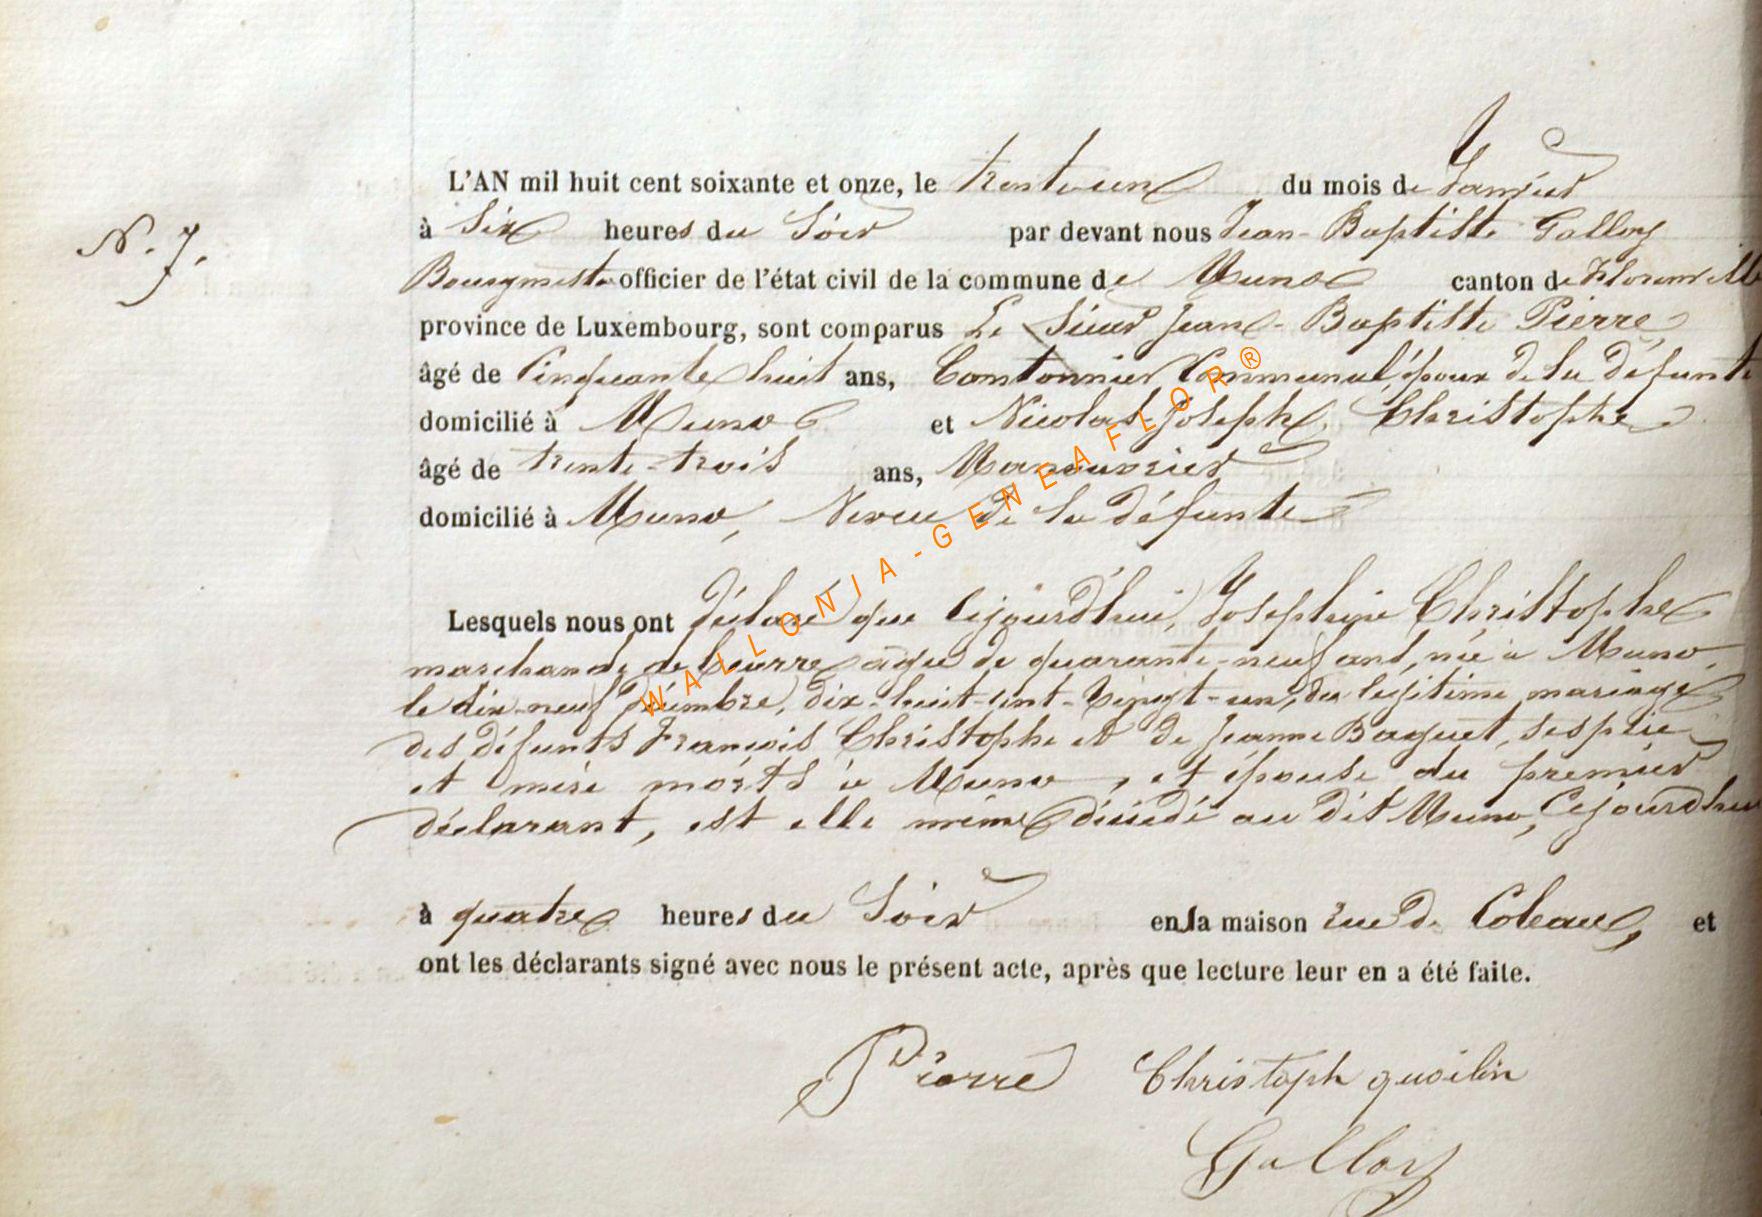 L'AN mil huit cent soixante et onze, le trente-un du mois de Janvier
N. 7.
à Six heures du Soir par devant nous Jean-Baptiste Galloy
Bourgmestre officier de l'état civil de la commune de Muno canton de Florenville
province de Luxembourg, sont comparus Le Sieur Jean-Baptiste Pierre
âgé de Cinquante huit ans, Cantonnier Communal, époux de la défunte
domicilié à Muno et Nicolas-Joseph Christophe
âgé de trente-trois ans, Manouvrier
domicilié à Muno, Neveu de la défunte
Lesquels nous ont déclaré que Cejourd'hui, Josephine Christophe
marchande de beurre âgée de quarante-neuf ans, née à Muno
le dix-neuf Décembre, dix-huit-cent-Vingt-un, du légitime mariage
des défunts François Christophe et de Jeanne Baquet, ses père
et mère morts à Muno, et épouse du premier
déclarant, est elle même décédé au dit Muno, Cejourdhui
à quatre heures du Soir en la maison rue de et
ont les déclarants signé avec nous le présent acte, après que lecture leur en a été faite.
Pierre Christoph quoilin
Galloy
WALLONIA-GENEAFLOR®